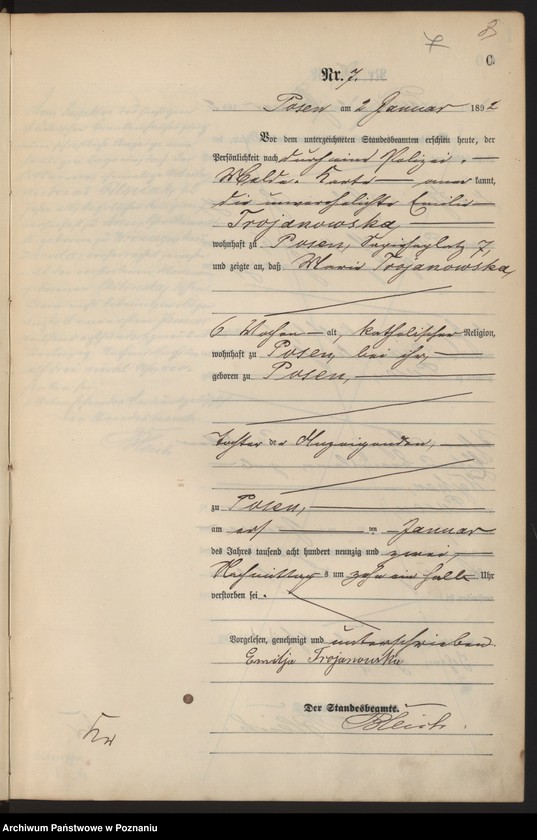 Nr. 7.
Posen am 2 Januar 1892
Vor dem unterzeichneten Standesbeamten erschien heute, der
Persönlichkeit nach durch eine Polizei-
Melde-Karte anerkannt,
die unverehelichte Emilie
Trojanowska,
wohnhaft zu Posen, Sapiehaplatz 7,
und zeigte an, daß Marie Trojanowska,
6 Wochen alt, katholischer Religion,
wohnhaft zu Posen, bei ihr,
geboren zu Posen,
Tochter der Anzeigenden,
zu Posen,
am ersten Januar
des Jahres tausend acht hundert neunzig und zwei,
Nachmittags um zehn ein halb Uhr
verstorben sei.
Vorgelesen, genehmigt und unterschrieben.
Emilja Trojanowska
Der Standesbeamte.
Bleich.
Archiwum Państwowe w Poznaniu